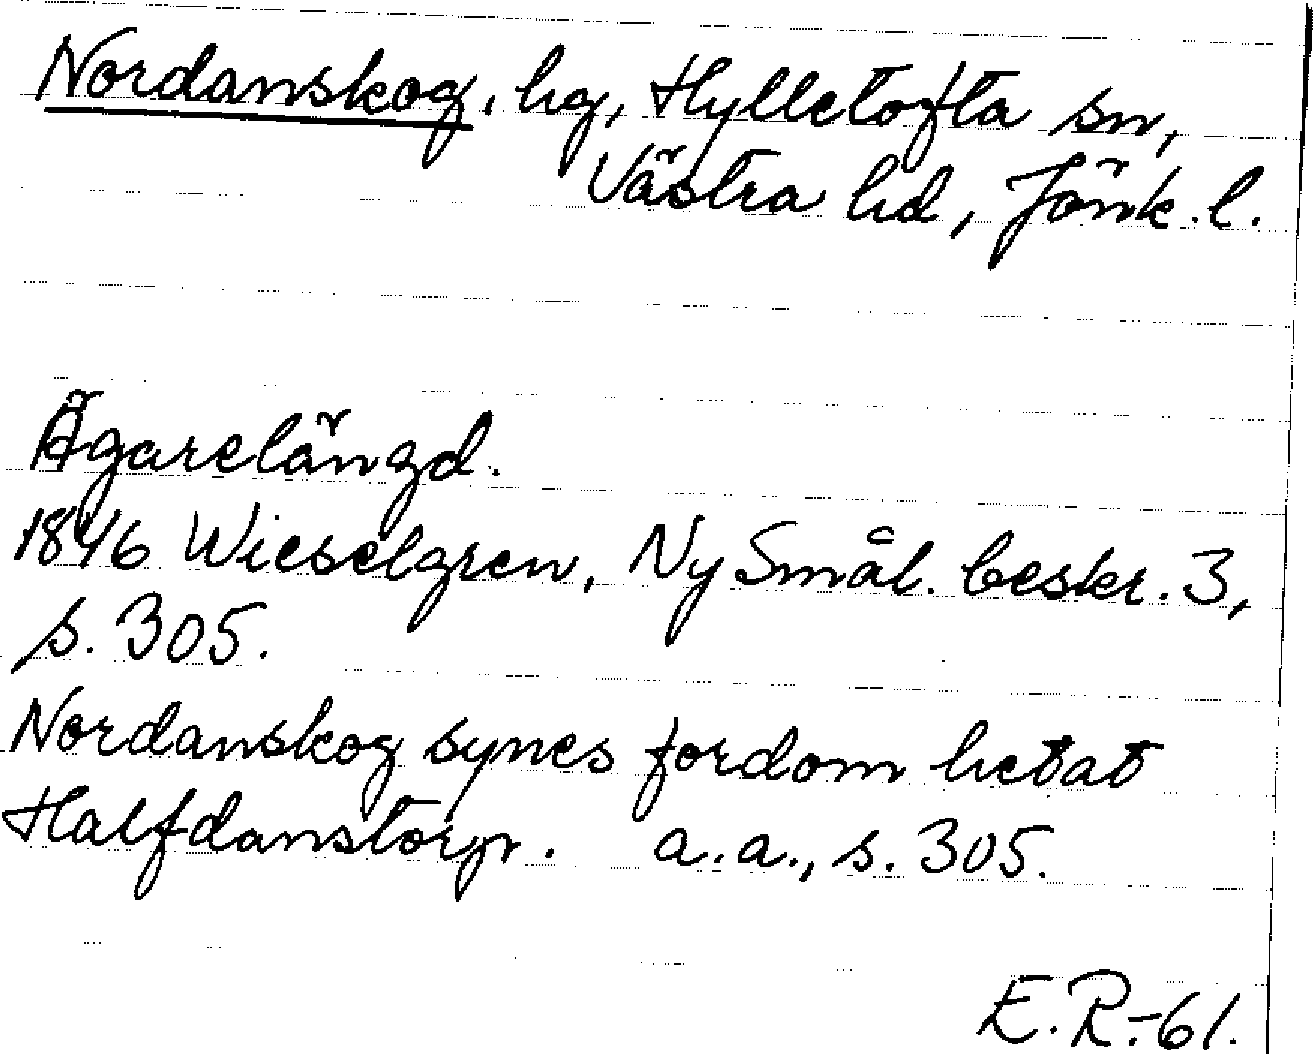 Nordanskog, hg, Hylletofta sn,
Västra hd, Jönk. l.
Ägarelängd.
1846 Wieselgren, Ny Smål. beskr. 3,
s. 305.
Nordanskog synes fordom hetat
Halfdanstorp. a.a., s. 305.
E.R.-61.